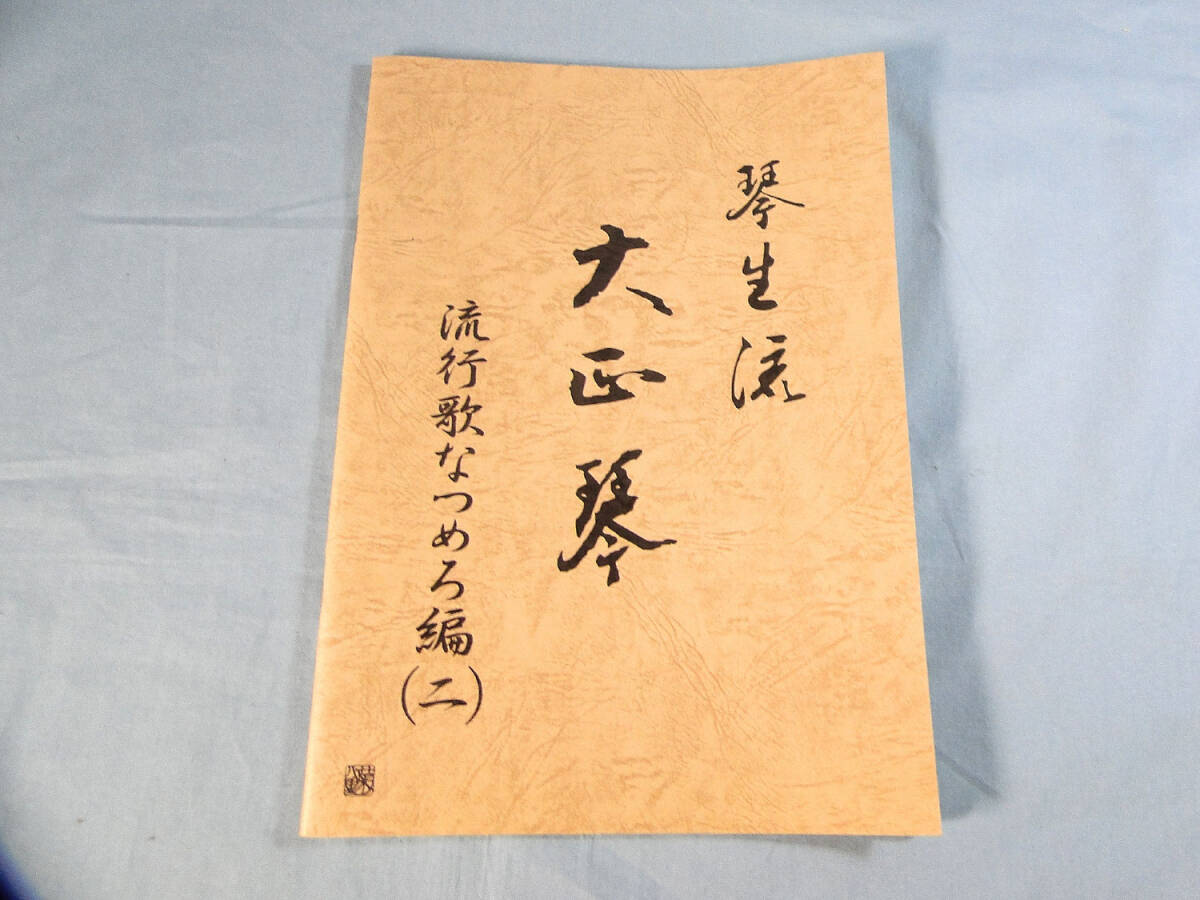 琴生流
大正琴
流行歌なつめろ編(二)